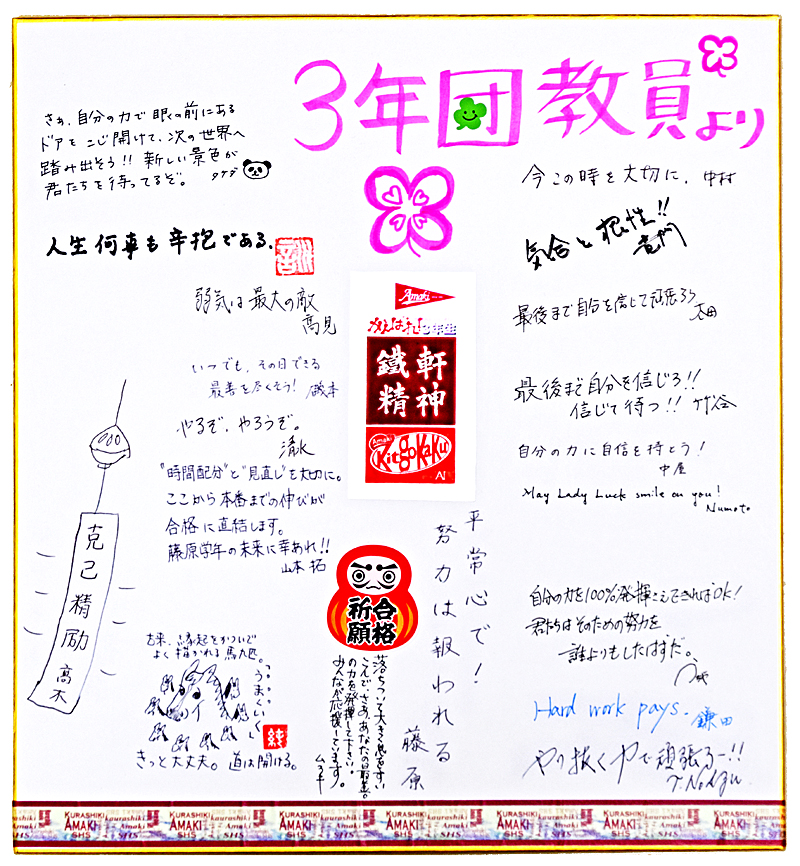 3年団教員より
さぁ、自分の力で眼の前にある
ドアをこじ開けて、次の世界へ
踏み出そう!! 新しい景色が
君たちを待ってるぞ。
タケダ
人生何事も辛抱である。
弱気は最大の敵
高見
いつでも、その日できる
最善を尽くそう!
やるぞ、やろうぞ。
清水
"時間配分"と"見直し"を大切に。
ここから本番までの伸びが
合格に直結します。
藤原学年の未来に幸あれ!!
山本 拓
克己精励
高木
古来、縁起をかついで
よく描かれる馬九匹。
"うまくいく"
純
きっと大丈夫。道は開ける。
Amaki
がんばれ!3年生
鐵軒
精神
Amaki
Kit go Kaku
AI
合格
祈願
落ちついて大きく息をすい
こんで、さあ、あなたの最高
の力を発揮して下さい。
みんなが応援しています。
平常心で!
努力は報われる
藤原
今この時を大切に、中村
気合と根性!!
竜門
最後まで自分を信じて頑張ろう
太田
最後まで自分を信じろ!!
信じて待つ!! 竹谷
自分の力に自信を持とう!
中屋
May Lady Luck smile on you!
Numoto
自分の力を100%発揮さえできればOK!
君たちはそのための努力を
誰よりもしたはずだ。
Hard work pays. 鎌田
やり抜く力で頑張るー!!
KURASHIKI
AMAKI
SHS